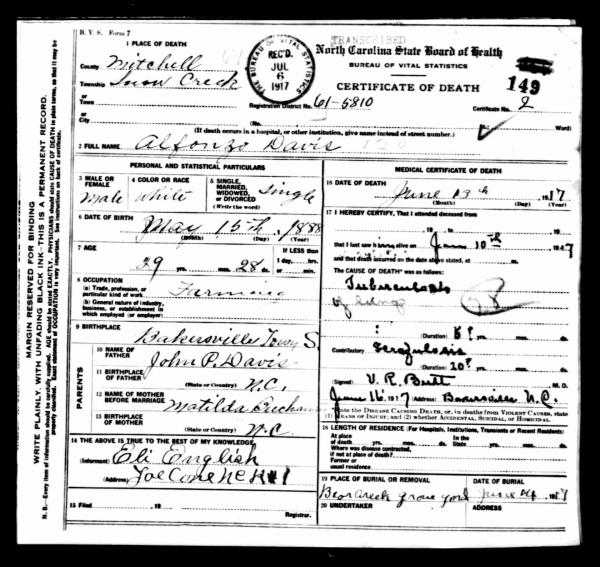 R. V. S. Form 7
1 PLACE OF DEATH
County Mitchell
Township Snow Creek
or
Town
or
City
THE BUREAU OF VITAL STATISTICS
REC'D.
JUL
6
1917
TRANSCRIBED
North Carolina State Board of Health
BUREAU OF VITAL STATISTICS
CERTIFICATE OF DEATH
149
Registration District No. 61-5810 Certificate No. 2
Ward)
(If death occurs in a hospital, or other institution, give name instead of street number.)
2 FULL NAME Alfonzo Davis
PERSONAL AND STATISTICAL PARTICULARS
3 MALE OR FEMALE
Male
4 COLOR OR RACE
White
5 SINGLE, MARRIED, WIDOWED, OR DIVORCED
(Write the word)
Single
6 DATE OF BIRTH
May 15th, 1888
(Month) (Day) (Year)
7 AGE
29 yrs. mos. 28 ds.
If less than 1 day, hrs. or min.
8 OCCUPATION
(a) Trade, profession, or particular kind of work
Farming
(b) General nature of industry, business, or establishment in which employed (or employer)
9 BIRTHPLACE
Bakersville
PARENTS
10 NAME OF FATHER
John P. Davis
11 BIRTHPLACE OF FATHER
(State or County) N.C.
12 NAME OF MOTHER BEFORE MARRIAGE
Matilda
13 BIRTHPLACE OF MOTHER
(State or County) N.C.
14 THE ABOVE IS TRUE TO THE BEST OF MY KNOWLEDGE
(Informant) Eli English
(Address)
15 Filed , 19
Registrar.
MEDICAL CERTIFICATE OF DEATH
16 DATE OF DEATH
June 13th 1917
(Month) (Day) (Year)
17 I HEREBY CERTIFY, That I attended deceased from
, 19 , to , 19
that I last saw h alive on June 10th 1917
and that death occurred on the date above stated, at m.
The CAUSE OF DEATH* was as follows:
Tuberculosis
of lungs
(Duration) 8? yrs. mos. ds.
Contributory
(Duration) 20? yrs. mos. ds.
(Signed) V. R. Butt M. D.
June 16, 1917 (Address) N.C.
*State the DISEASE CAUSING DEATH, or, in deaths from VIOLENT CAUSES, state (1) MEANS OF INJURY; and (2) whether ACCIDENTAL, SUICIDAL, or HOMICIDAL.
18 LENGTH OF RESIDENCE (For Hospitals, Institutions, Transients or Recent Residents)
At place of death yrs. mos. ds. In the State yrs. mos. ds.
Where was disease contracted, if not at place of death?
Former or usual residence
19 PLACE OF BURIAL OR REMOVAL
Bear Creek grave yard
DATE OF BURIAL
June 14 1917
20 UNDERTAKER
ADDRESS
MARGIN RESERVED FOR BINDING
WRITE PLAINLY, WITH UNFADING BLACK INK—THIS IS A PERMANENT RECORD.
N. B.—Every item of information should be carefully supplied. AGE should be stated EXACTLY. PHYSICIANS should state CAUSE OF DEATH in plain terms, so that it may be properly classified. Exact statement of OCCUPATION is very important. See instructions on back of certificate.